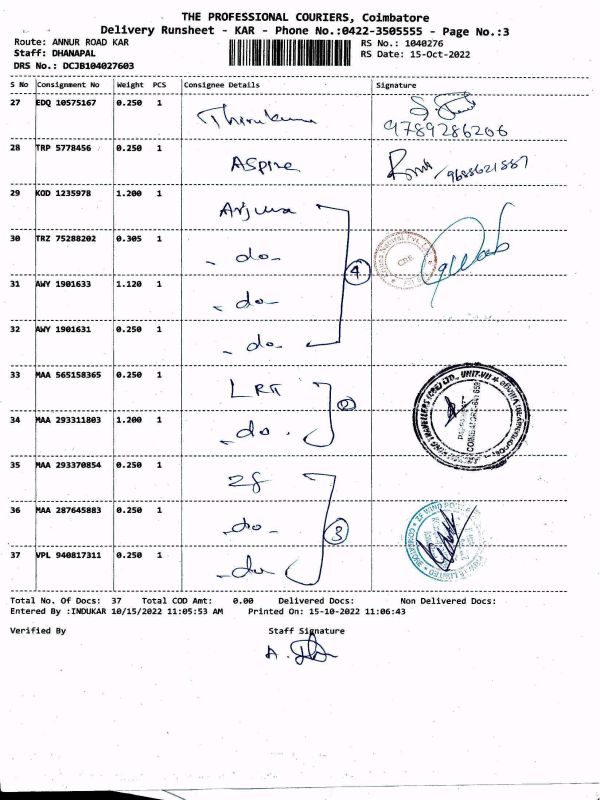 THE PROFESSIONAL COURIERS, Coimbatore
Delivery Runsheet - KAR - Phone No.:0422-3505555 - Page No.:3
Route: ANNUR ROAD KAR RS No.: 1040276
Staff: DHANAPAL RS Date: 15-Oct-2022
DRS No.: DCJB104027603
S No Consignment No Weight PCS Consignee Details Signature
27 EDQ 10575167 0.250 1 Thirukumar
9789286206
28 TRP 5778456 0.250 1 ASpire 9688621887
29 KOD 1235978 1.200 1 Arjuna
30 TRZ 75288202 0.305 1 - do -
CBE
4
31 AWY 1901633 1.120 1 - do -
32 AWY 1901631 0.250 1 - do -
33 MAA 565158365 0.250 1 LRT
2
34 MAA 293311803 1.200 1 - do -
35 MAA 293370854 0.250 1 28
36 MAA 287645883 0.250 1 - do -
3
37 VPL 940817311 0.250 1 - do -
Total No. Of Docs: 37 Total COD Amt: 0.00 Delivered Docs: Non Delivered Docs:
Entered By :INDUKAR 10/15/2022 11:05:53 AM Printed On: 15-10-2022 11:06:43
Verified By Staff Signature